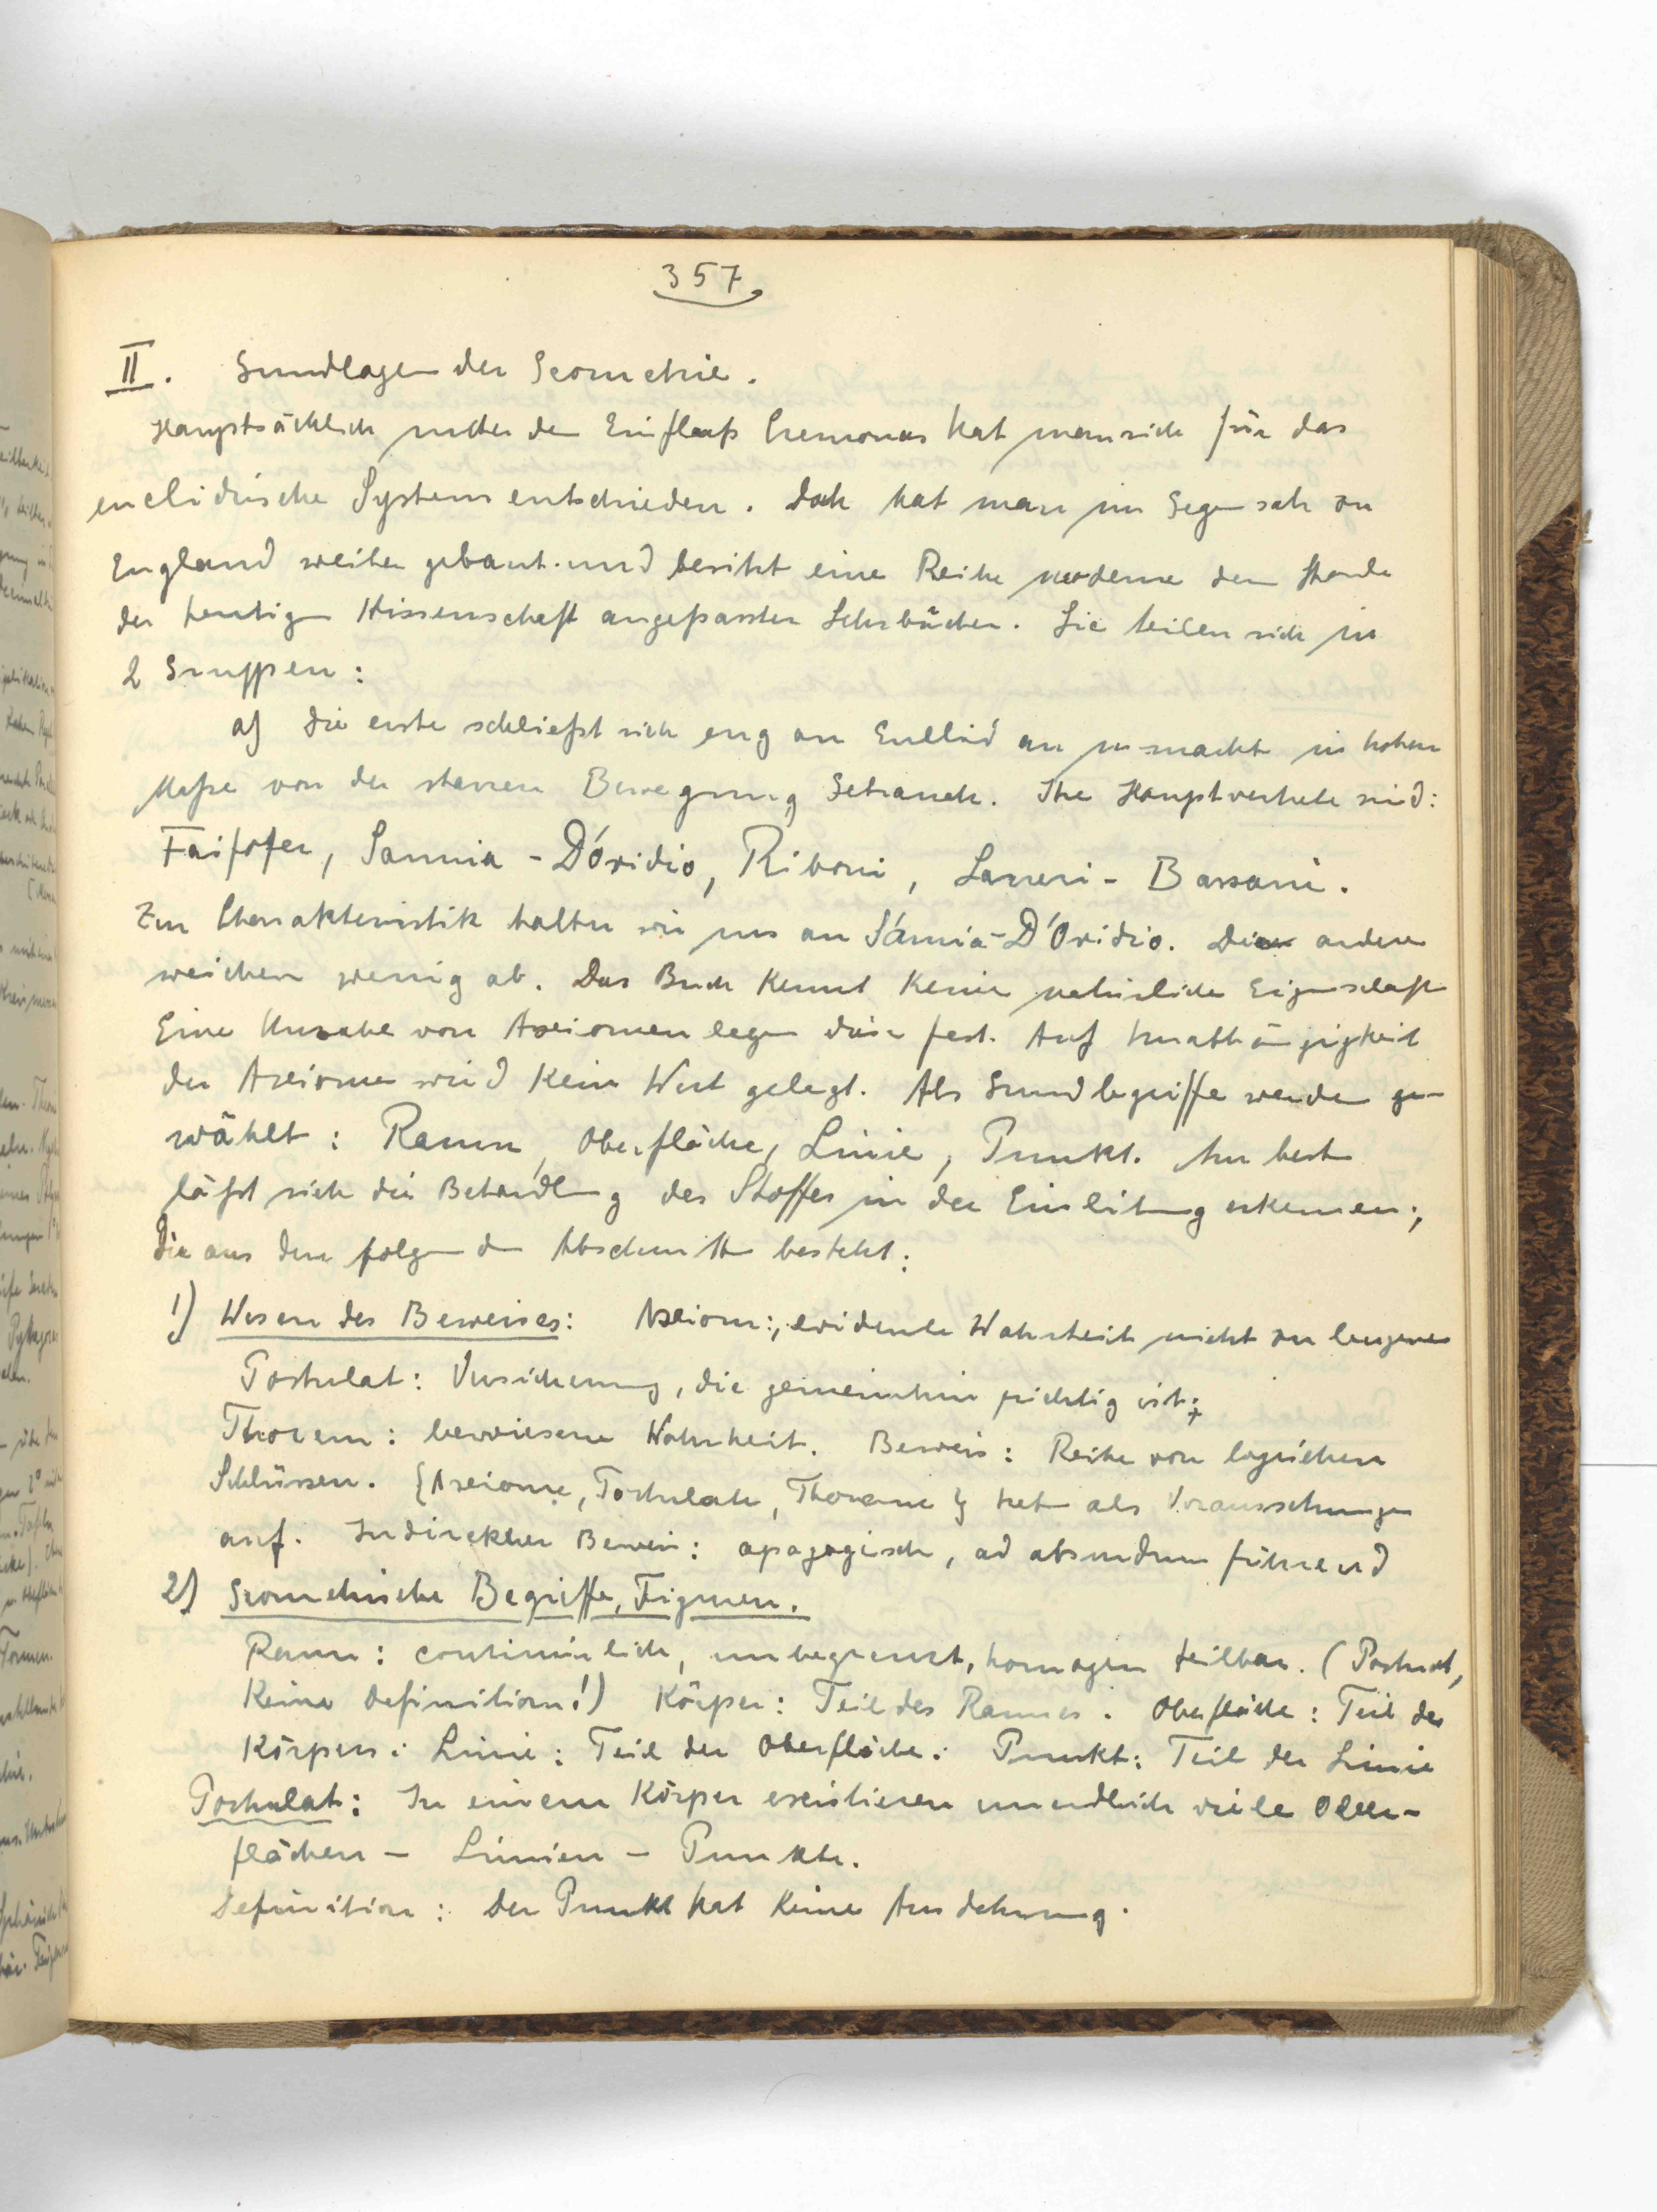 357
II. Grundlagen der Geometrie.
Hauptsächlich unter dem Einfluß Cremonas hat man sich für das
euclidische System entschieden. Doch hat man im Gegensatz zu
England weiter gebaut und besitzt eine Reihe moderne dem Stande
der heutigen Wissenschaft angepasster Lehrbücher. Sie teilen sich in
2 Gruppen:
a) Die erste schließt sich eng an Euklid an u. macht in hohem
Maße von der starren Bewegung Gebrauch. Ihre Hauptvertreter sind:
Faifofer, Sannia - D'Ovidio, Riboni, Lazzeri - Bassani.
Zur Charakteristik halten wir uns an Sannia - D'Ovidio. Die anderen
weichen wenig ab. Das Buch kennt keine natürliche Eigenschaft
Eine Unzahl von Axiomen legen diese fest. Auf Unabhängigkeit
der Axiome wird kein Wert gelegt. Als Grundbegriffe werden ge-
wählt: Raum, Oberfläche, Linie, Punkt. Am besten
läßt sich die Behandlung des Stoffes in der Einleitung erkennen;
die aus den folgenden Abschnitten besteht:
1) Wesen des Beweises: Axiom: evidente Wahrheit nicht zu leugnen
Postulat: Versicherung, die gemeinhin richtig ist;
Thorem: bewiesene Wahrheit. Beweis: Reihe von logischen
Schlüssen. {Axiome, Postulate, Thoreme} treten als Voraussetzungen
auf. Indirekter Beweis: apagogisch, ad absurdum führend
2) Geometrische Begriffe, Figuren.
Raum: continuierlich, unbegrenzt, homogen teilbar. (Postulat,
Keine Definition!) Körper: Teil des Raumes. Oberfläche: Teil des
Körpers: Linie: Teil der Oberfläche: Punkt: Teil der Linie
Postulat: In einem Körper existieren unendlich viele Ober-
flächen - Linien - Punkte.
Definition: Der Punkt hat keine Ausdehnung.